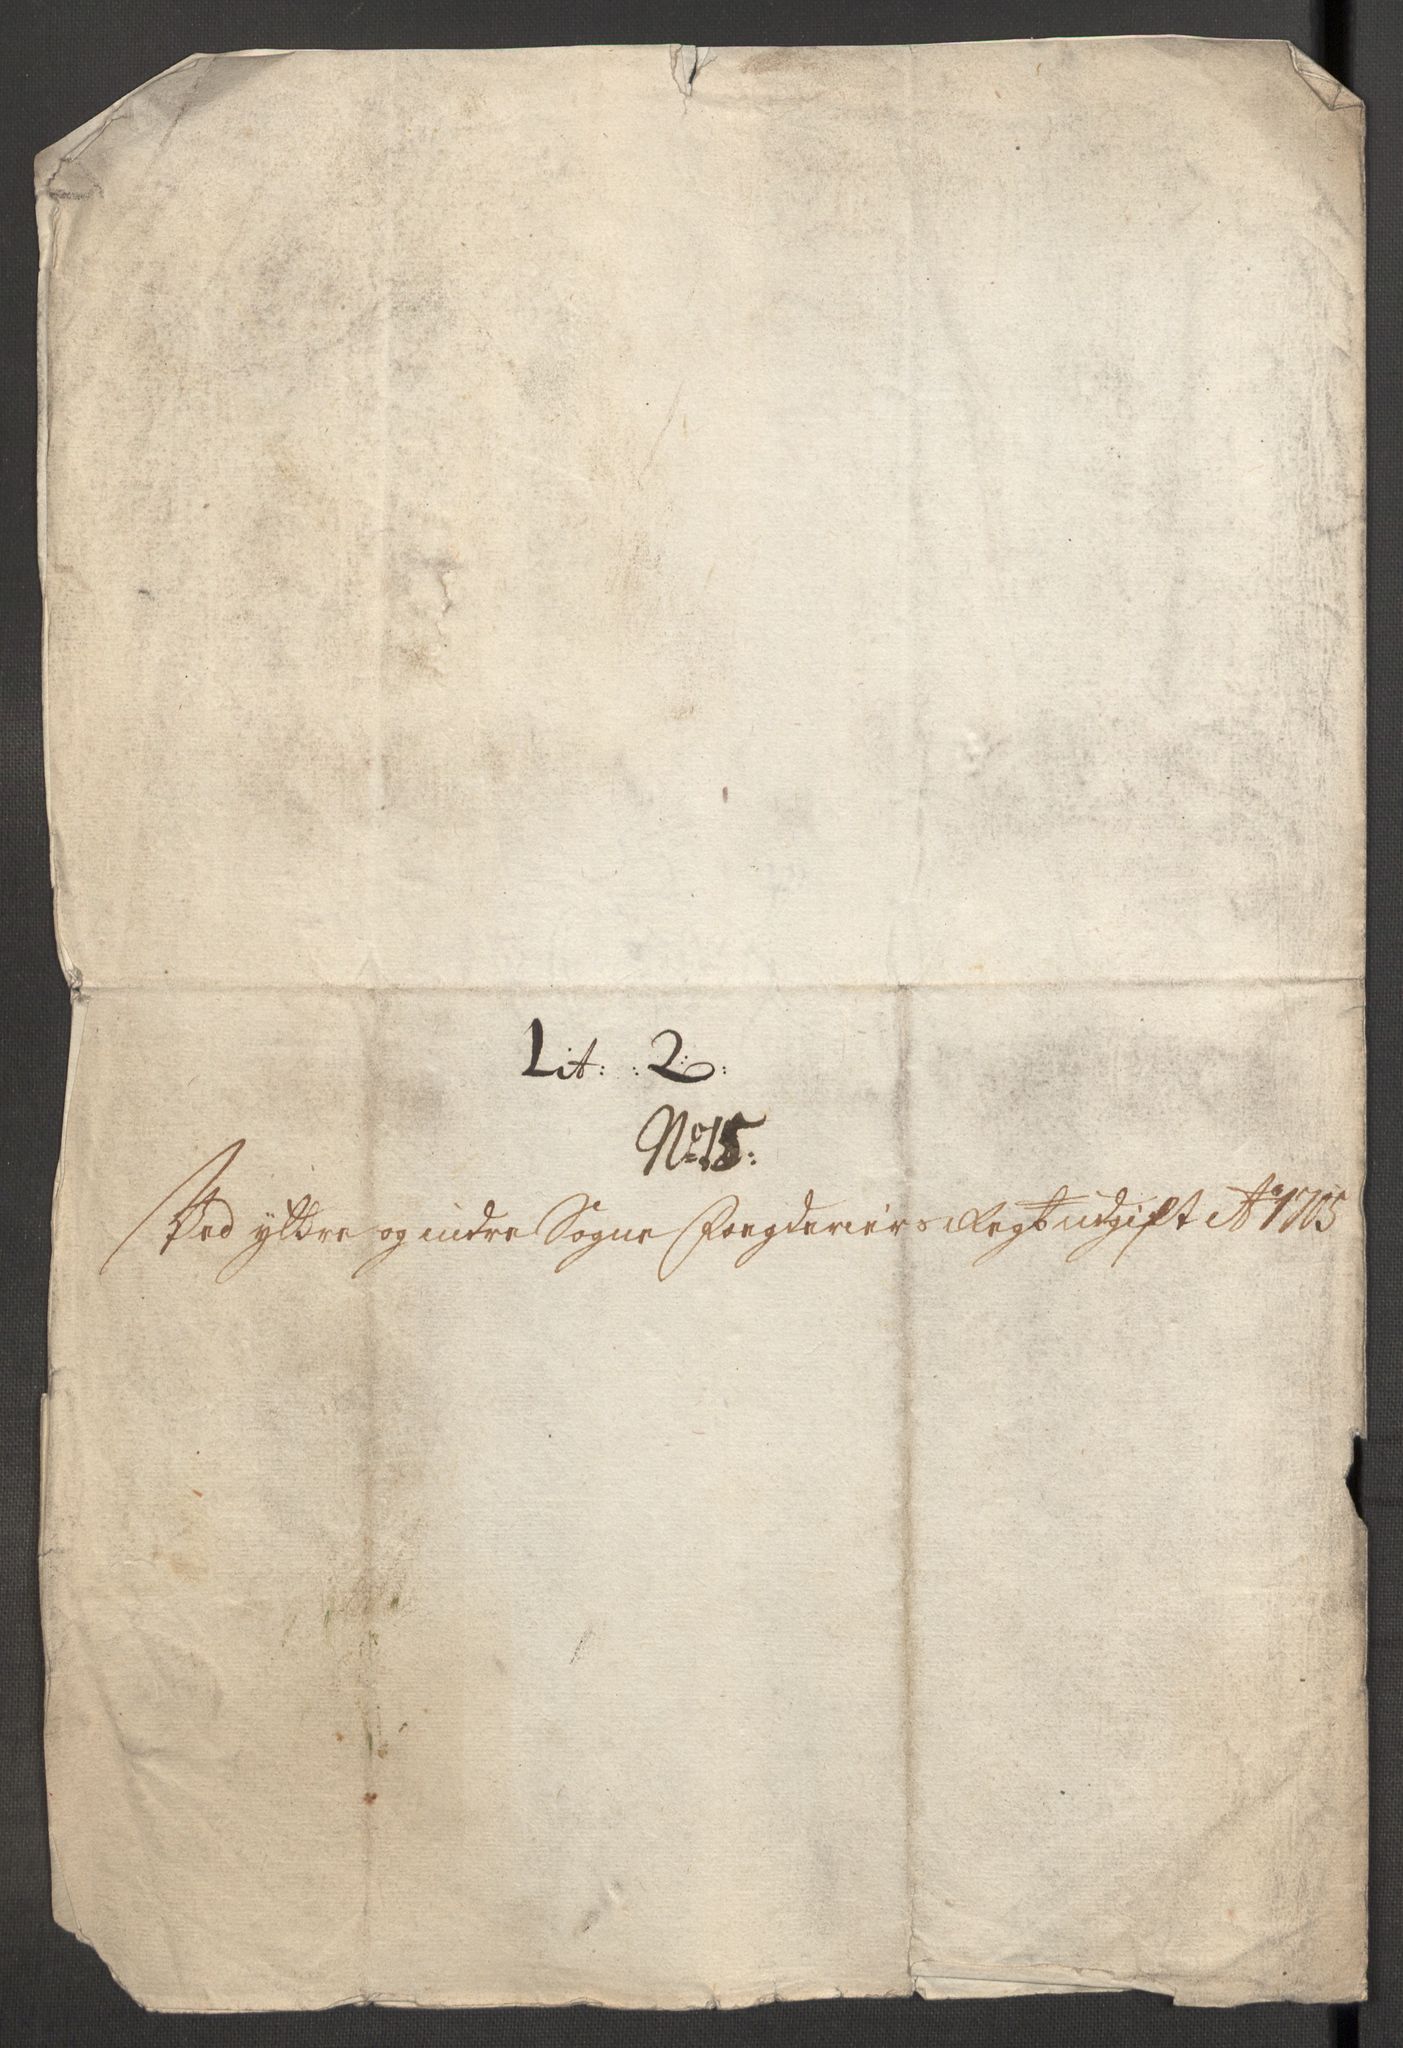 Lit: : 2:
No 15:
Ved yttre og indre Sogns Foegderiers Regb udgift Ao 1705